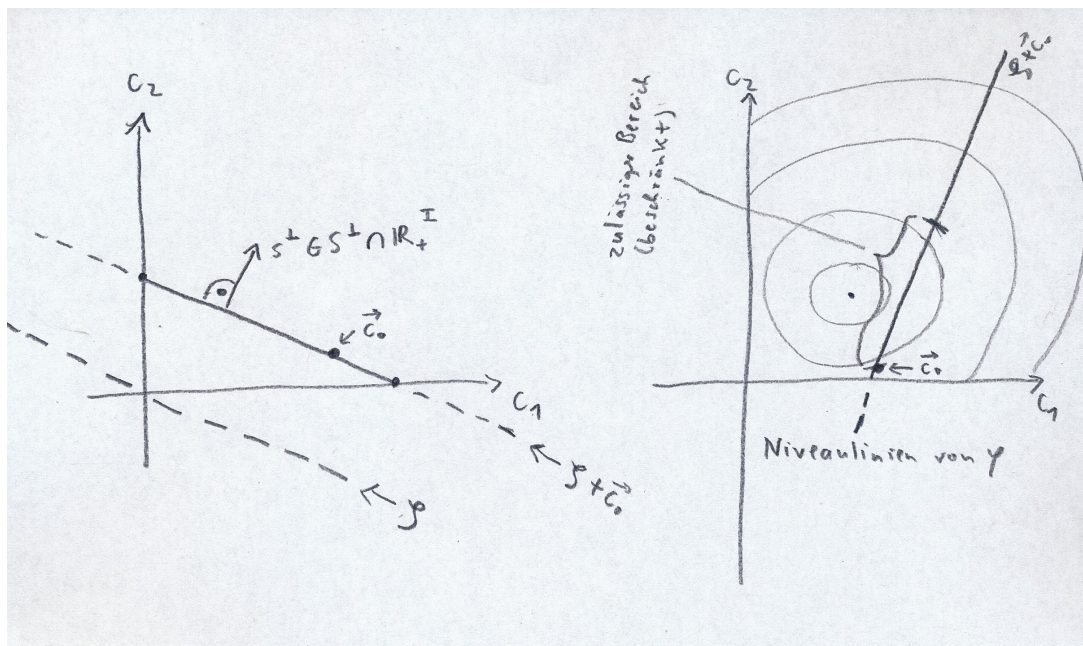 C₂
s^⊥ ∈ S^⊥ ∩ ℝ₊^I
c⃗₀
C₁
S + c⃗₀
S
C₂
zulässiger Bereich
(beschränkt)
S + c⃗₀
c⃗₀
C₁
Niveaulinien von φ